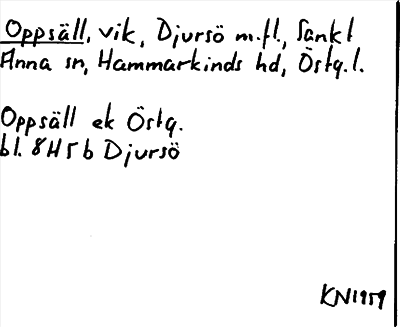 Oppsäll, vik, Djursö m.fl., Sankt
Anna sn, Hammarkinds hd, Östg.l.
Oppsäll ek Östg.
bl. 8H5b Djursö
KN1959